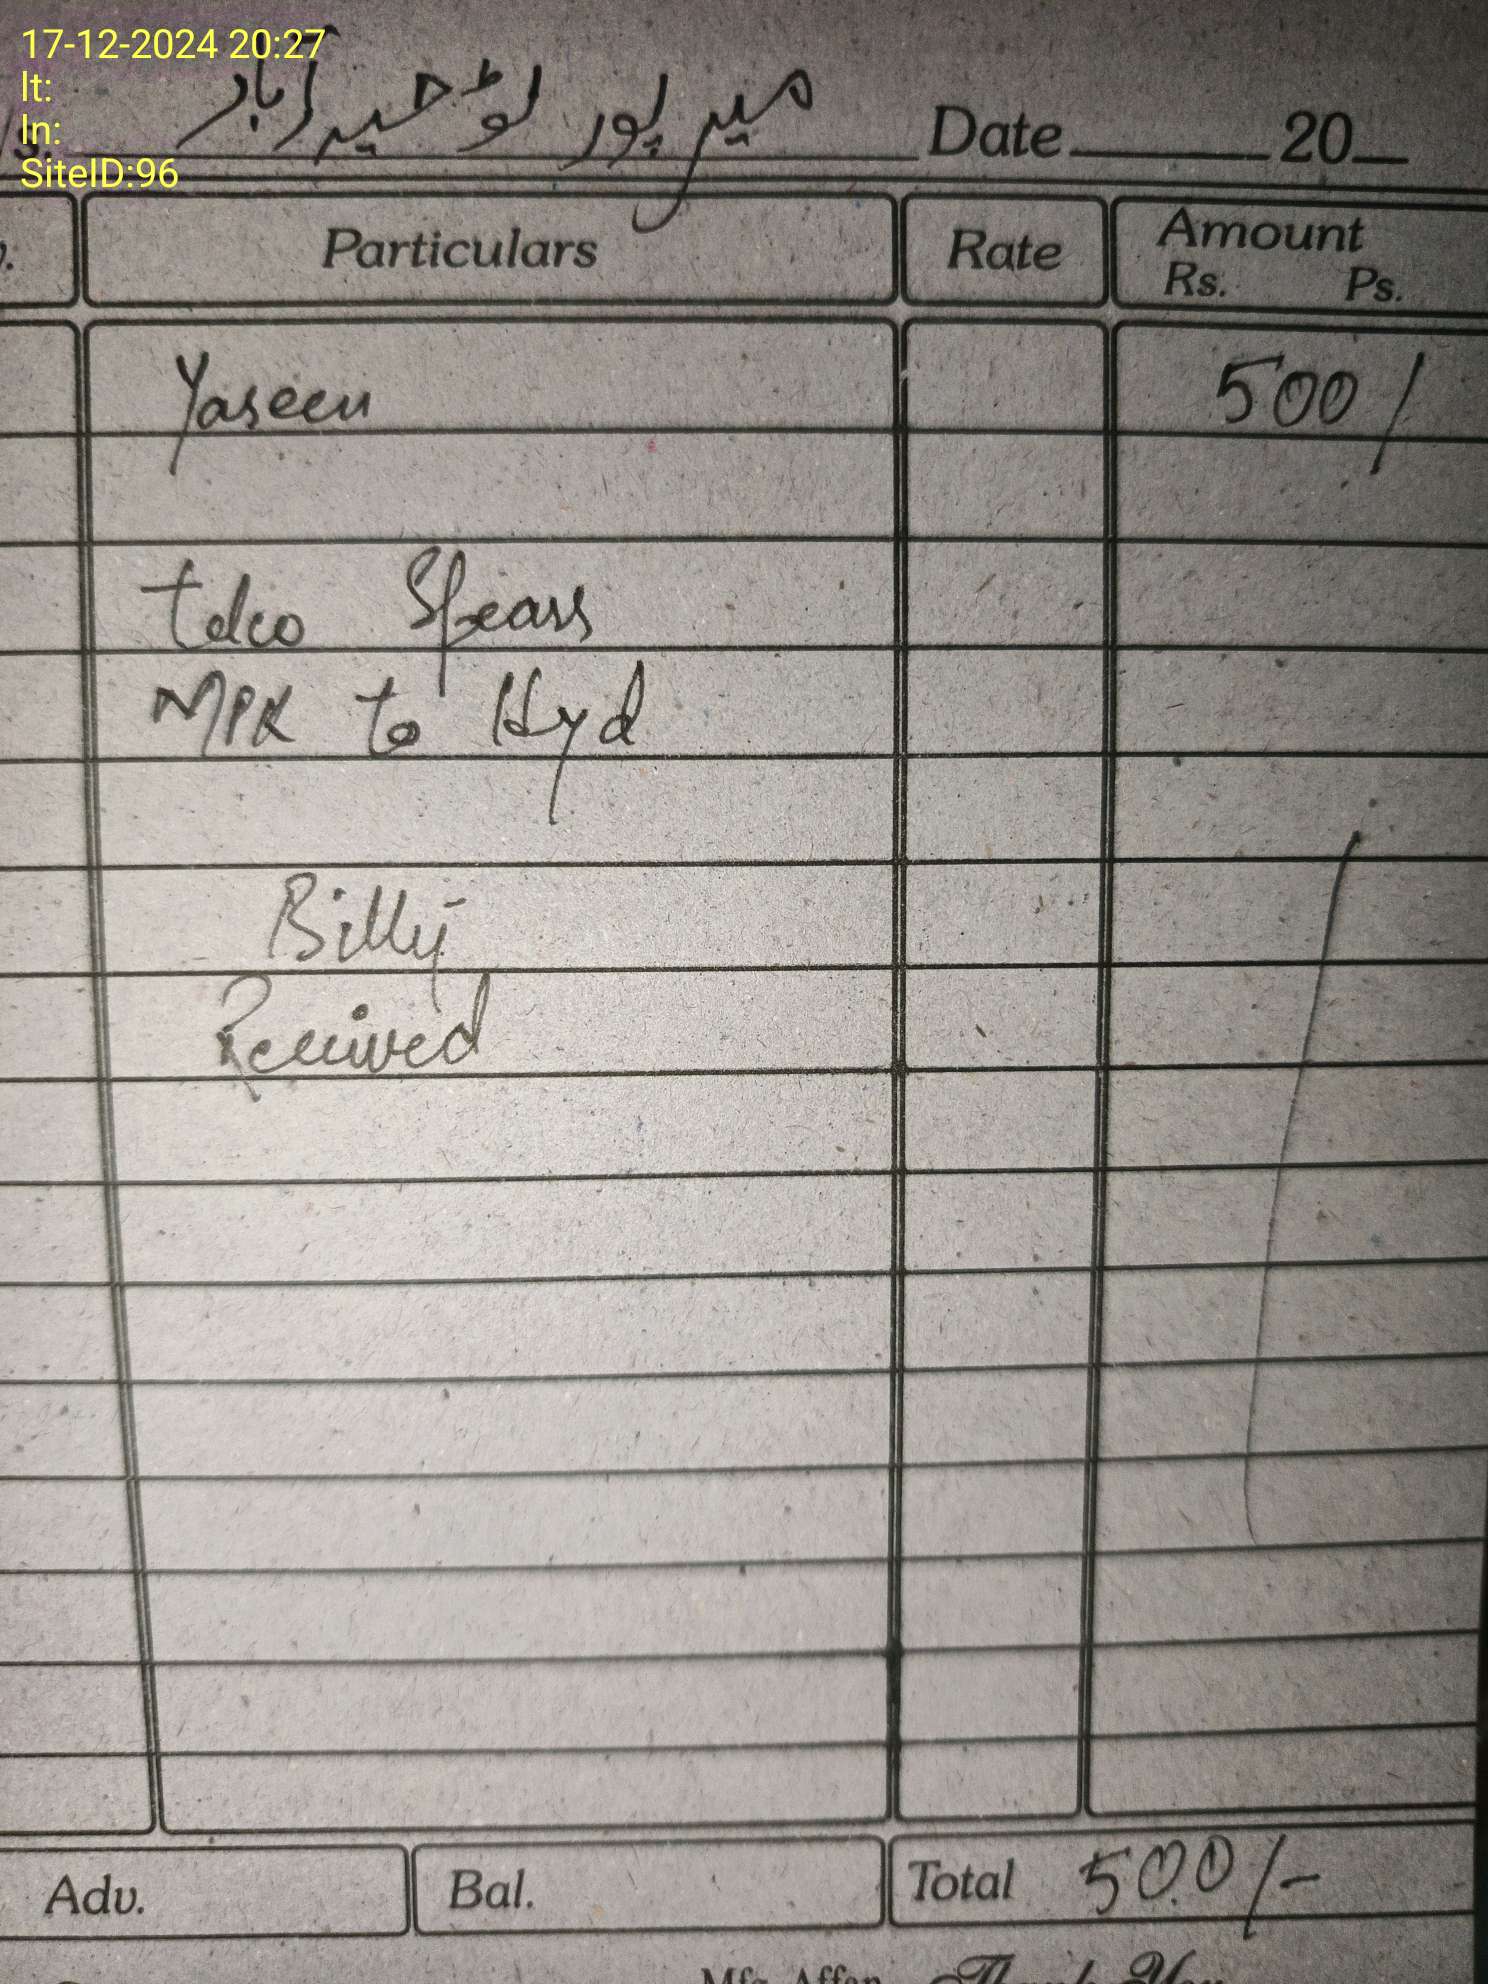 17-12-2024 20:27
lt:
ln:
SiteID:96
میر پور ٹو حیدرآباد
Date 20
Particulars Rate Amount
Rs. Ps.
Yaseen 500/
Telco Spears
MPK to Hyd
Billty
Received
Adv. Bal. Total 500/-
Thank You